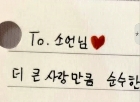 To. 소언님♥
더 큰 사랑만큼 순수한